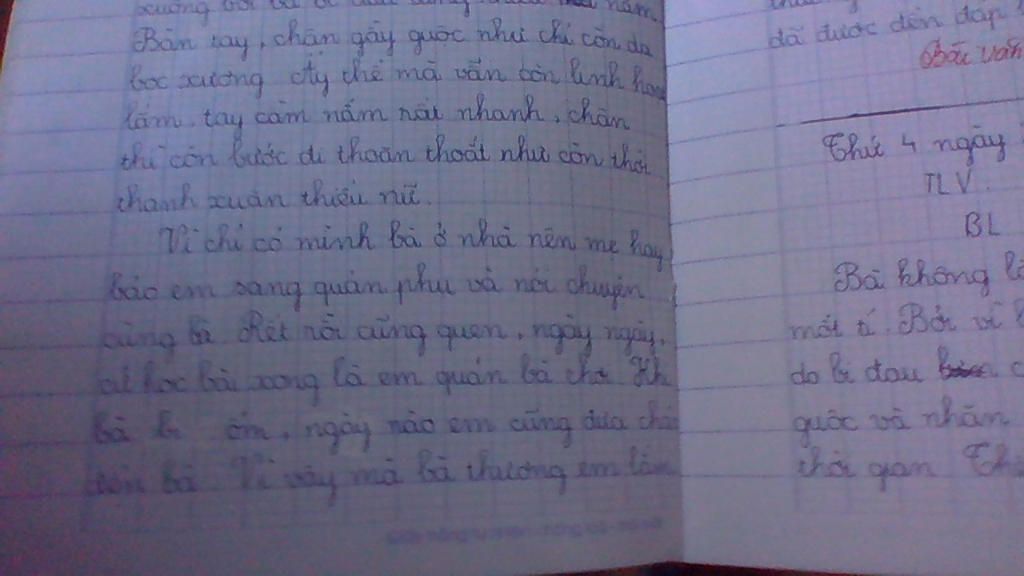 Bàn tay, chân gầy guộc như chỉ còn da
bọc xương. Ấy thế mà vẫn còn linh hoạt
lắm, tay cầm nắm rất nhanh, chân
thì còn bước đi thoăn thoắt như còn thời
thanh xuân thiếu nữ.
Vì chỉ có mình bà ở nhà nên mẹ hay
bảo em sang quán phụ và nói chuyện
cùng bà. Rết rồi cũng quen, ngày ngày,
học bài xong là em quán bà chơi. Kh
bà bị ốm, ngày nào em cũng đưa cháo
bà. Vì vậy mà bà thương em lắm
đã được đền đáp
Bài văn
Thứ 4 ngày
TLV.
BL
Bà không
một tí. Bởi vì
do bị đau
guộc và nhăn
thời gian.